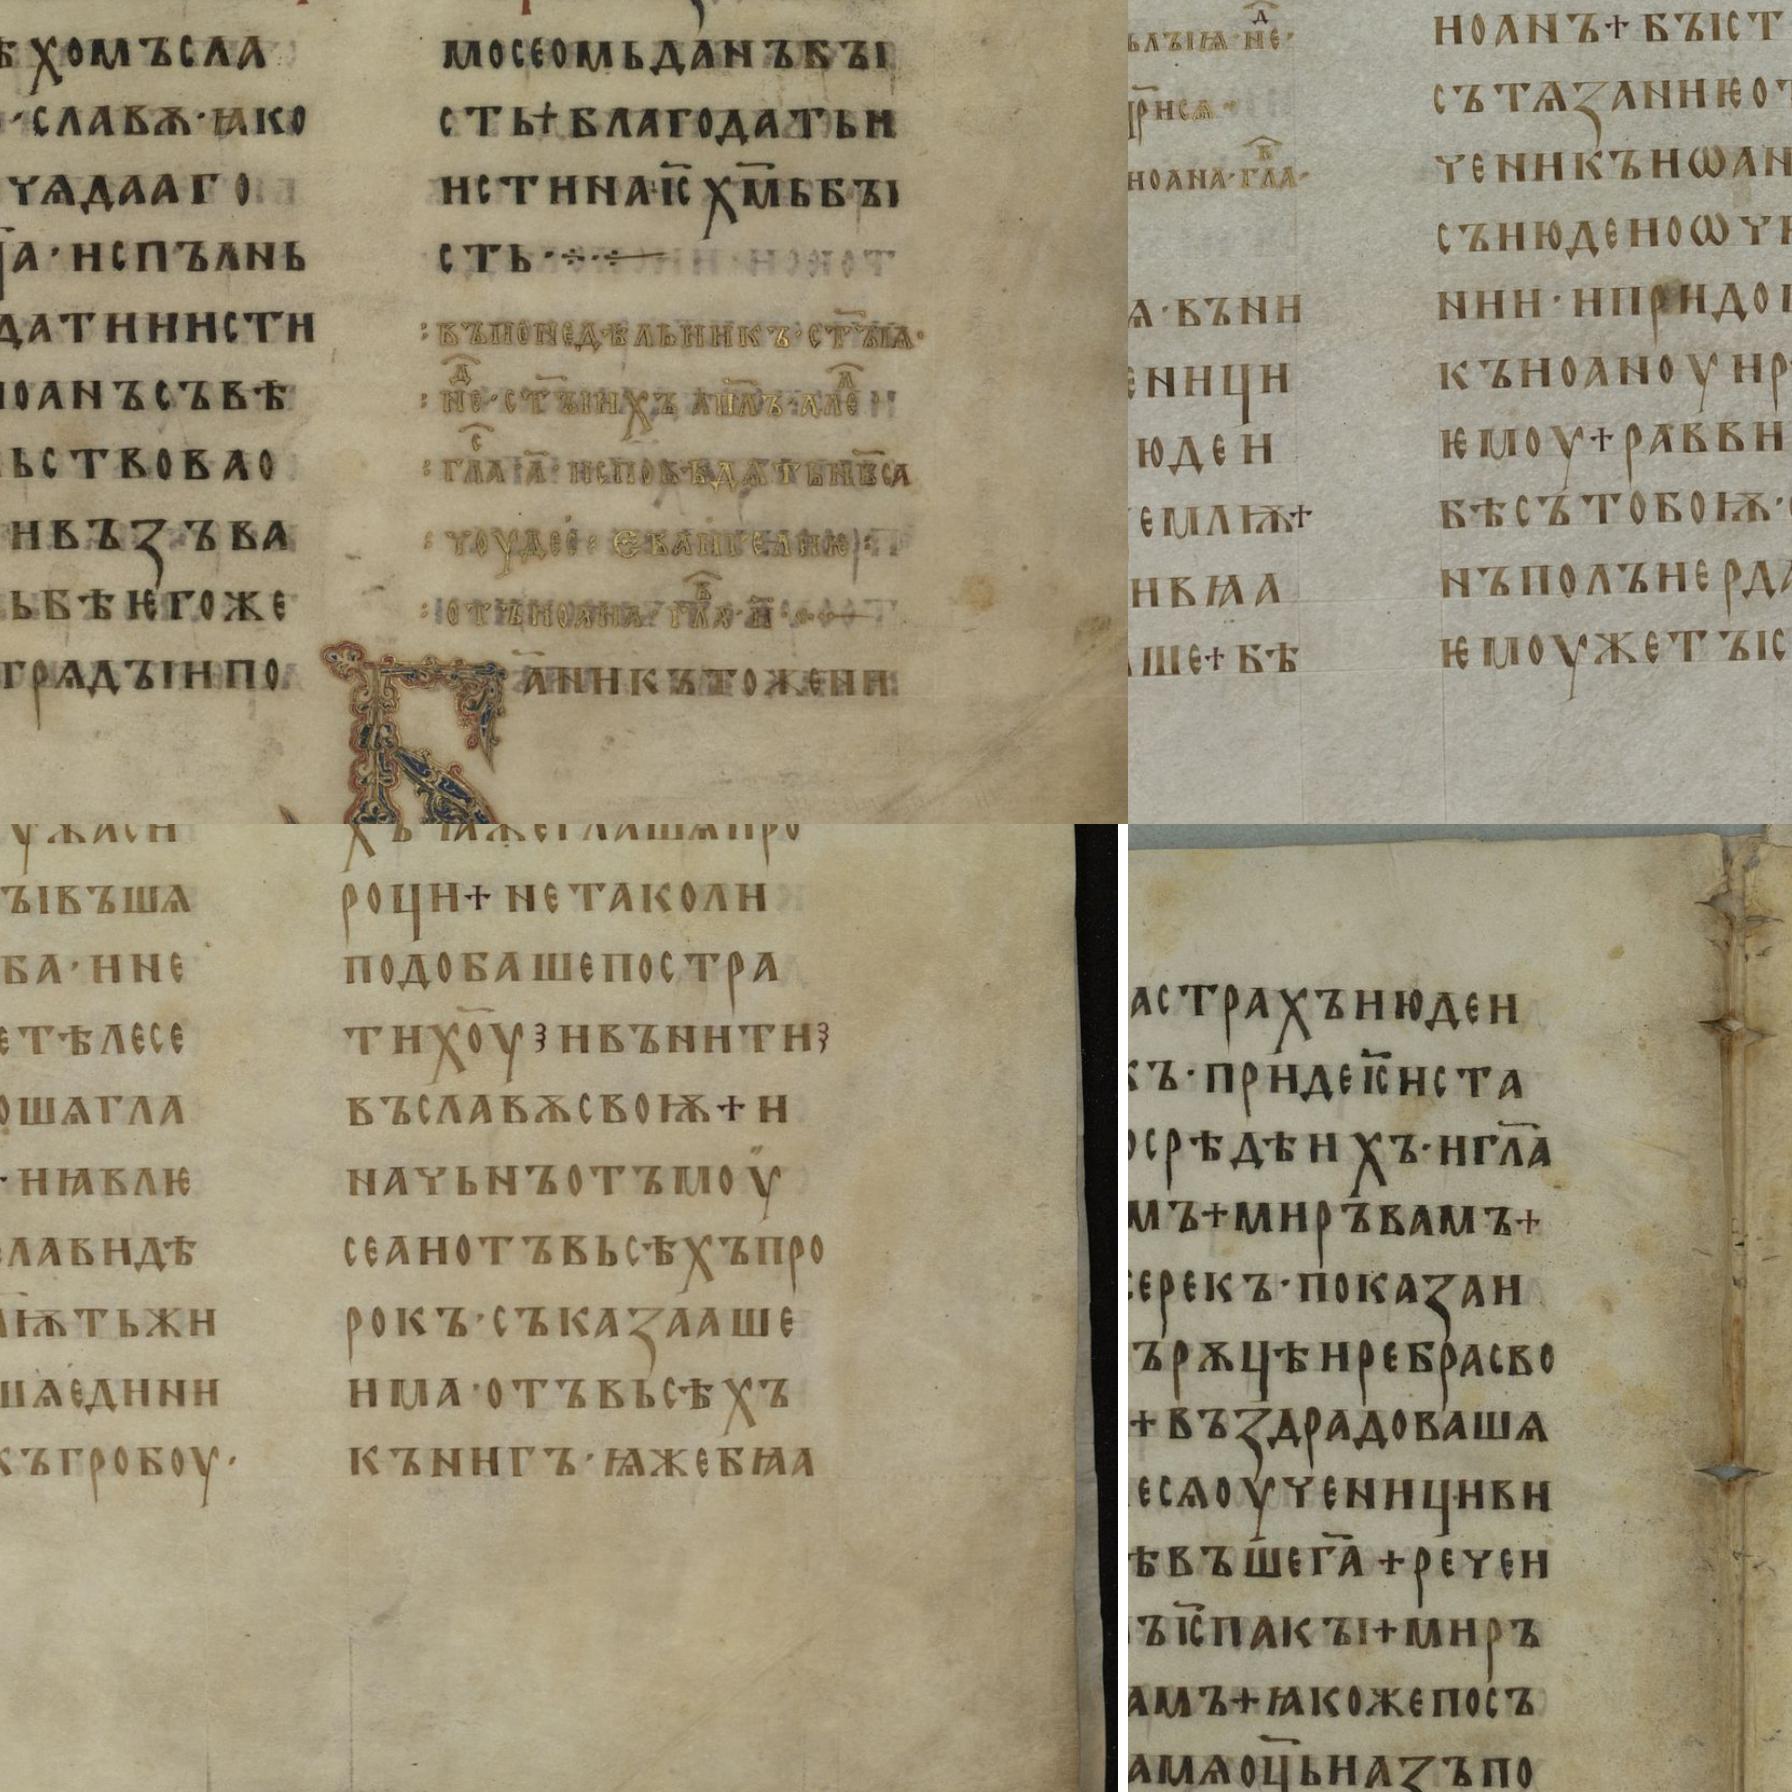 ѢХОМЪСЛА
·СЛАВѪ·ꙖКО
ЧѦДААГО
А·ИСПЪЛНЬ
ДАТИИИСТИ
ІОАНЪСЪВѢ
ЬСТВОВАО
ИВЪЗЪВА
ЬБѢѤГОЖЕ
ГРѦДЪІИПО
МОСЕОМЬДАНЪБЪІ
СТЬ+БЛАГОДАТЬИ
ИСТИНАІ҃С Х҃МЬБЪІ
СТЬ·÷·
:ВЪПОНЕДѢЛЬНИКЪ·СТ҃ЪІѨ·
:НЕⷣ·СТ҃ЪІИХЪ АП҃ЛЪ·АЛЕⷧ
:ГЛАⷭ А҃· ИСПОВѢДѦТЬНБ҃СА
:ЧОУДЕС: ЕВАНГЕЛИѤ:
:ОТЪИОАНА·ГЛАⷡ·И҃·
Б АНИКЪТОЖЕНИ
ЬЛЪІѨ·НЕⷣ·
ПР҃ИСѦ
ИОАНА·ГЛАⷡ·
Ѧ·ВЪНИ
ЕНИЦИ
ЮДЕИ
ЕМЛѬ+
ИВꙖА
АШЕ+БѢ
ИОАНЪ+БЪІСТ
СЪТѦЗАНИѤОТ
ЧЕНИКЪИѠАН
СЪИЮДЕИОѠЧ
НИИ·ИПРИДО
КЪИОАНОУИР
ѤМОУ+РАВВИ
БѢСЪТОБОѬ·
НЪПОЛЪИЕРДА
ѤМОУЖЕТЪІС
УЖАСИ
ЪІВЪШѦ
БА·ИНЕ
ЕТѢЛЕСЕ
ОШѦГЛА
·ИꙖВЛѤ
ЛАВИДѢ
ѬТЬЖИ
ШѦЕДИНИ
КЪГРОБОУ·
ХЪ ꙖЖЕГЛАШѦПРО
РОЦИ+ НЕТАКОЛИ
ПОДОБАШЕПОСТРА
ТИХ҃ОУ ИВЪНИТИ
ВЪСЛАВѪСВОѬ+И
НАЧЬНЪОТЪМОУ
СЕАИОТЪВЬСѢХЪПРО
РОКЪ·СЪКАЗААШЕ
ИМА·ОТЪВЬСѢХЪ
КЪНИГЪ·ꙖЖЕБꙖА
АСТРАХЪИЮДЕИ
КЪ·ПРИДЕІ҃СИСТА
ОСРѢДѢИХЪ·ИГЛ҃А
МЪ+МИРЪВАМЪ+
СЕРЕКЪ·ПОКАЗАИ
ЪРѪЦѢИРЕБРАСВО
+ВЪЗДРАДОВАШѦ
ЕСѦОУЧЕНИЦИВИ
ѢВЪШЕГ҃А +РЕЧЕИ
ЪІ҃СПАКЪІ+МИРЪ
АМЪ+ꙖКОЖЕПОСЪ
АМѦОЦ҃ЬИАЗЪПО